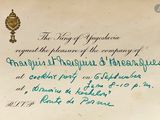 The King of Yugoslavia
request the pleasure of the company of
Marquis et Marquise d'Arcangues
at cocktail party on 6 September
at from 8-10 p.m.
Route de
R.S.V.P.